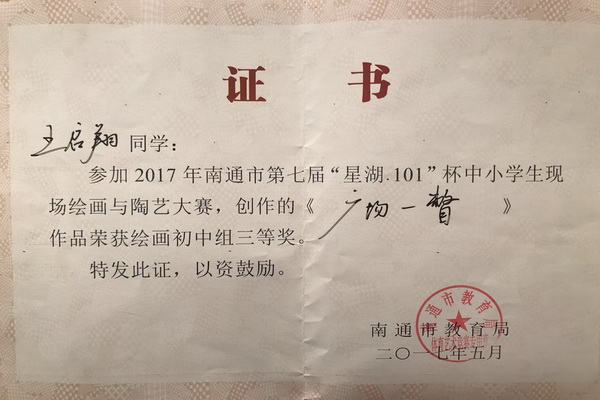 证 书
王启翔 同学：
参加 2017 年南通市第七届“星湖·101”杯中小学生现
场绘画与陶艺大赛，创作的《 广场一瞥 》
作品荣获绘画初中组三等奖。
特发此证，以资鼓励。
南通市教育局
南通市教育局
二〇一七年五月